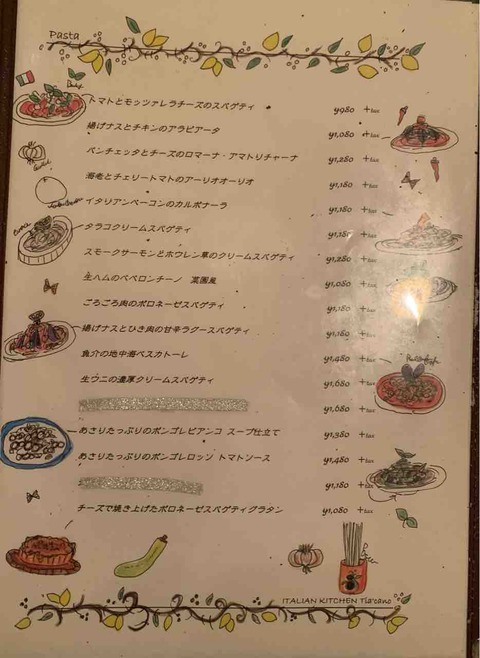 Pasta
トマトとモッツァレラチーズのスパゲティ ¥980 +tax
揚げナスとチキンのアラビアータ ¥1,080 +tax
パンチェッタとチーズのロマーナ・アマトリチャーナ ¥1,280 +tax
海老とチェリートマトのアーリオオーリオ ¥1,180 +tax
イタリアンベーコンのカルボナーラ ¥1,180 +tax
タラコクリームスパゲティ ¥1,180 +tax
スモークサーモンとホウレン草のクリームスパゲティ ¥1,280 +tax
生ハムのペペロンチーノ 菜園風 ¥1,080 +tax
ごろごろ肉のボロネーゼスパゲティ ¥1,180 +tax
揚げナスとひき肉の甘辛ラグースパゲティ ¥1,180 +tax
魚介の地中海ペスカトーレ ¥1,480 +tax
生ウニの濃厚クリームスパゲティ ¥1,680 +tax
¥1,680 +tax
あさりたっぷりのボンゴレビアンコ スープ仕立て ¥1,380 +tax
あさりたっぷりのボンゴレロッソ トマトソース ¥1,480 +tax
¥1,180 +tax
チーズで焼き上げたボロネーゼスパゲティグラタン ¥1,080 +tax
ITALIAN KITCHEN Tia'cano